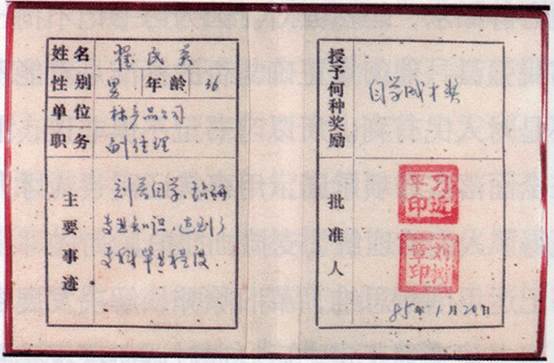 姓名 翟民英
性别 男 年龄 36
单位 林产品公司
职务 副经理
主要事迹
刻苦自学、钻研
专业知识,达到了
专科毕业程度
授予何种奖励 自学成才奖
批准人
习近平印
刘树章印
85年1月20日